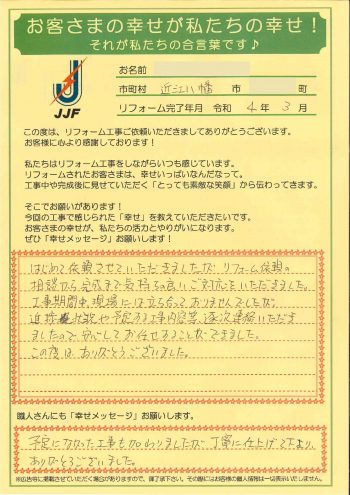 お客さまの幸せが私たちの幸せ！
それが私たちの合言葉です♪
JJF
お名前
市町村 近江八幡 市 町
リフォーム完了年月 令和 4 年 3 月
この度は、リフォーム工事ご依頼いただきましてありがとうございます。
お客様に心より感謝しております！
私たちはリフォーム工事をしながらいつも感じています。
リフォームされたお客さまは、幸せいっぱいなんだなって。
工事中や完成後に見せていただく「とっても素敵な笑顔」から伝わってきます。
そこでお願いがあります！
今回の工事で感じられた「幸せ」を教えていただきたいです。
お客さまの幸せが、私たちの活力とやりがいになります。
ぜひ「幸せメッセージ」お願いします！
はじめて依頼させていただきましたが リフォーム依頼の
相談から完成まで気持ちの良いご対応をいただきました。
工事期間中、現場には立ち会っておりませんでしたが
進捗状況や予定する工事内容等、逐次連絡いただき
ましたので 安心してお任せすることができました。
この度は ありがとうございました。
職人さんにも「幸せメッセージ」お願いします。
予定になかった工事も加わりましたが 丁寧に仕上げて下さり、
ありがとうございました。
※広告等に掲載させていただく場合がありますので、御了承下さい。その際にはお客様の個人情報は一切表示いたしません。